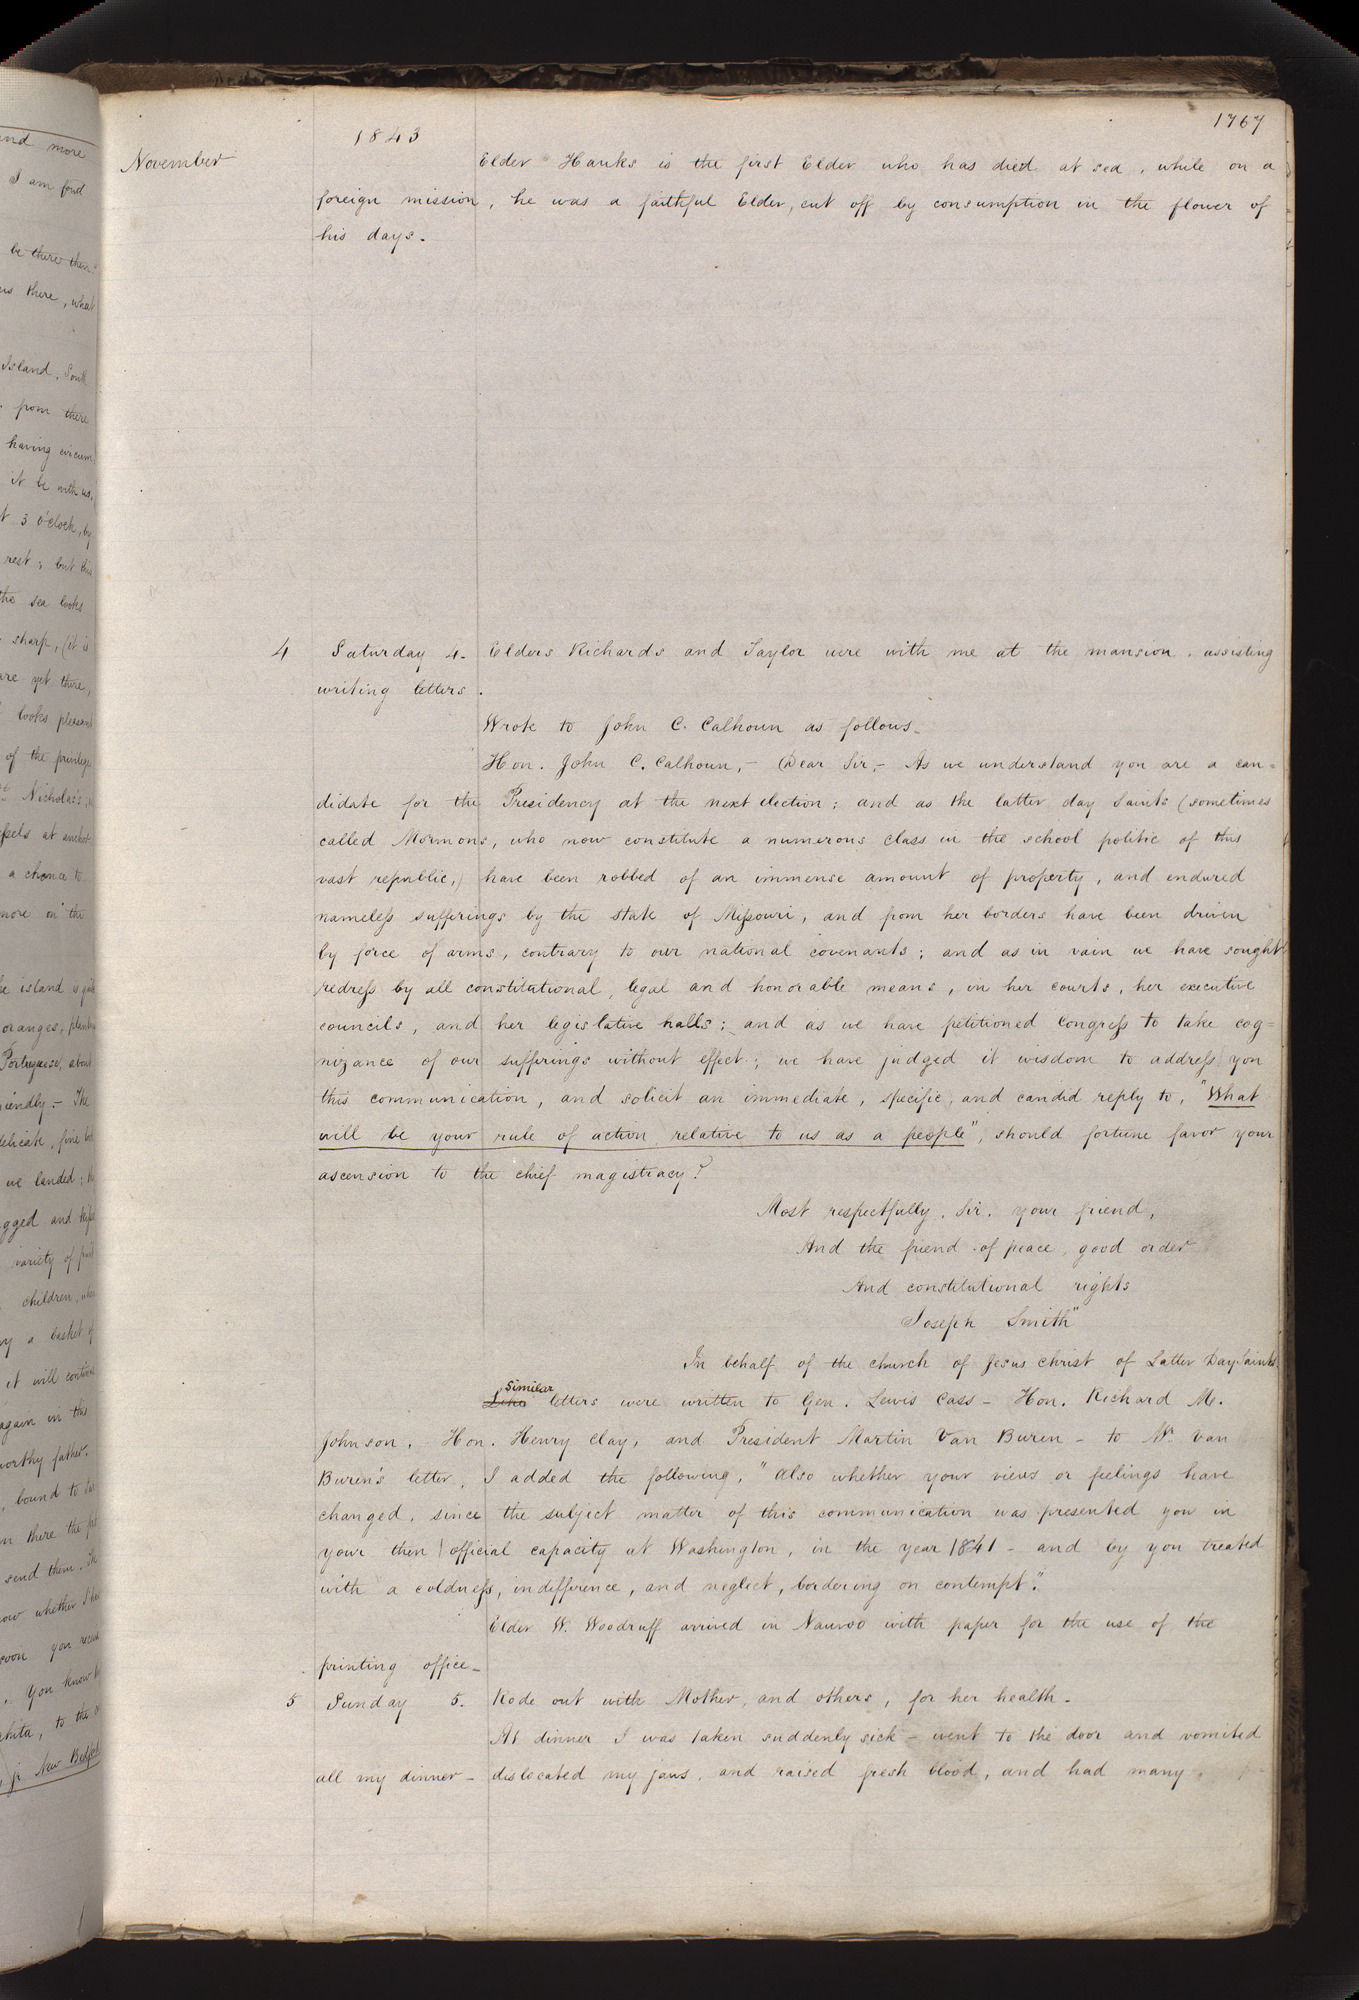 1767
1843
November
Elder Hanks is the first Elder who has died at sea, while on a
foreign mission, he was a faithful Elder, cut off by consumption in the flower of
his days.
4 Saturday 4. Elders Richards and Taylor were with me at the mansion, assisting
writing letters.
Wrote to John C. Calhoun as follows_
Hon. John C. Calhoun,- Dear Sir,- As we understand you are a can=
didate for the Presidency at the next election; and as the latter day Saints (sometimes
called Mormons, who now constitute a numerous class in the school politic of this
vast republic,) have been robbed of an immense amount of property, and endured
nameless sufferings by the state of Missouri, and from her borders have been driven
by force of arms, contrary to our national covenants; and as in vain we have sought
redress by all constitutional, legal and honorable means, in her courts, her executive
councils, and her legislative halls; and as we have petitioned Congress to take cog=
nizance of our sufferings without effect; we have judged it wisdom to address you
this communication, and solicit an immediate, specific, and candid reply to, "What
will be your rule of action relative to us as a people", should fortune favor your
ascension to the chief magistracy?
Most respectfully, Sir, your friend,
And the friend of peace, good order
And constitutional rights
Joseph Smith"
In behalf of the church of Jesus Christ of Latter Day Saints.
Similar
letters were written to Gen. Lewis Cass - Hon. Richard M.
Johnson, Hon. Henry Clay, and President Martin Van Buren - to Mr. Van
Buren's letter, I added the following, "also whether your views or feelings have
changed, since the subject matter of this communication was presented you in
your then official capacity at Washington, in the year 1841 - and by you treated
with a coldness, indifference, and neglect, bordering on contempt."
Elder W. Woodruff arrived in Nauvoo with paper for the use of the
printing office_
5 Sunday 5. Rode out with Mother, and others, for her health_
At dinner I was taken suddenly sick - went to the door and vomited
all my dinner - dislocated my jaws, and raised fresh blood, and had many
and more
I am fond
be there then
us there, what
Island, South
from there
having circum
it be with us,
3 o'clock, by
rest; but this
the sea looks
sharp, (it is
are yet there,
looks pleasant
of the privilege
Nicholas's,
vessels at anchor
a chance to
more on the
island is
oranges,
Portuguese, about
friendly.- The
delicate, fine
we landed;
and
variety of fruit
children,
a basket of
it will
again in this
worthy father.
bound to
there the
send them.
whether I
soon you
You know
to the
jr New Bedford